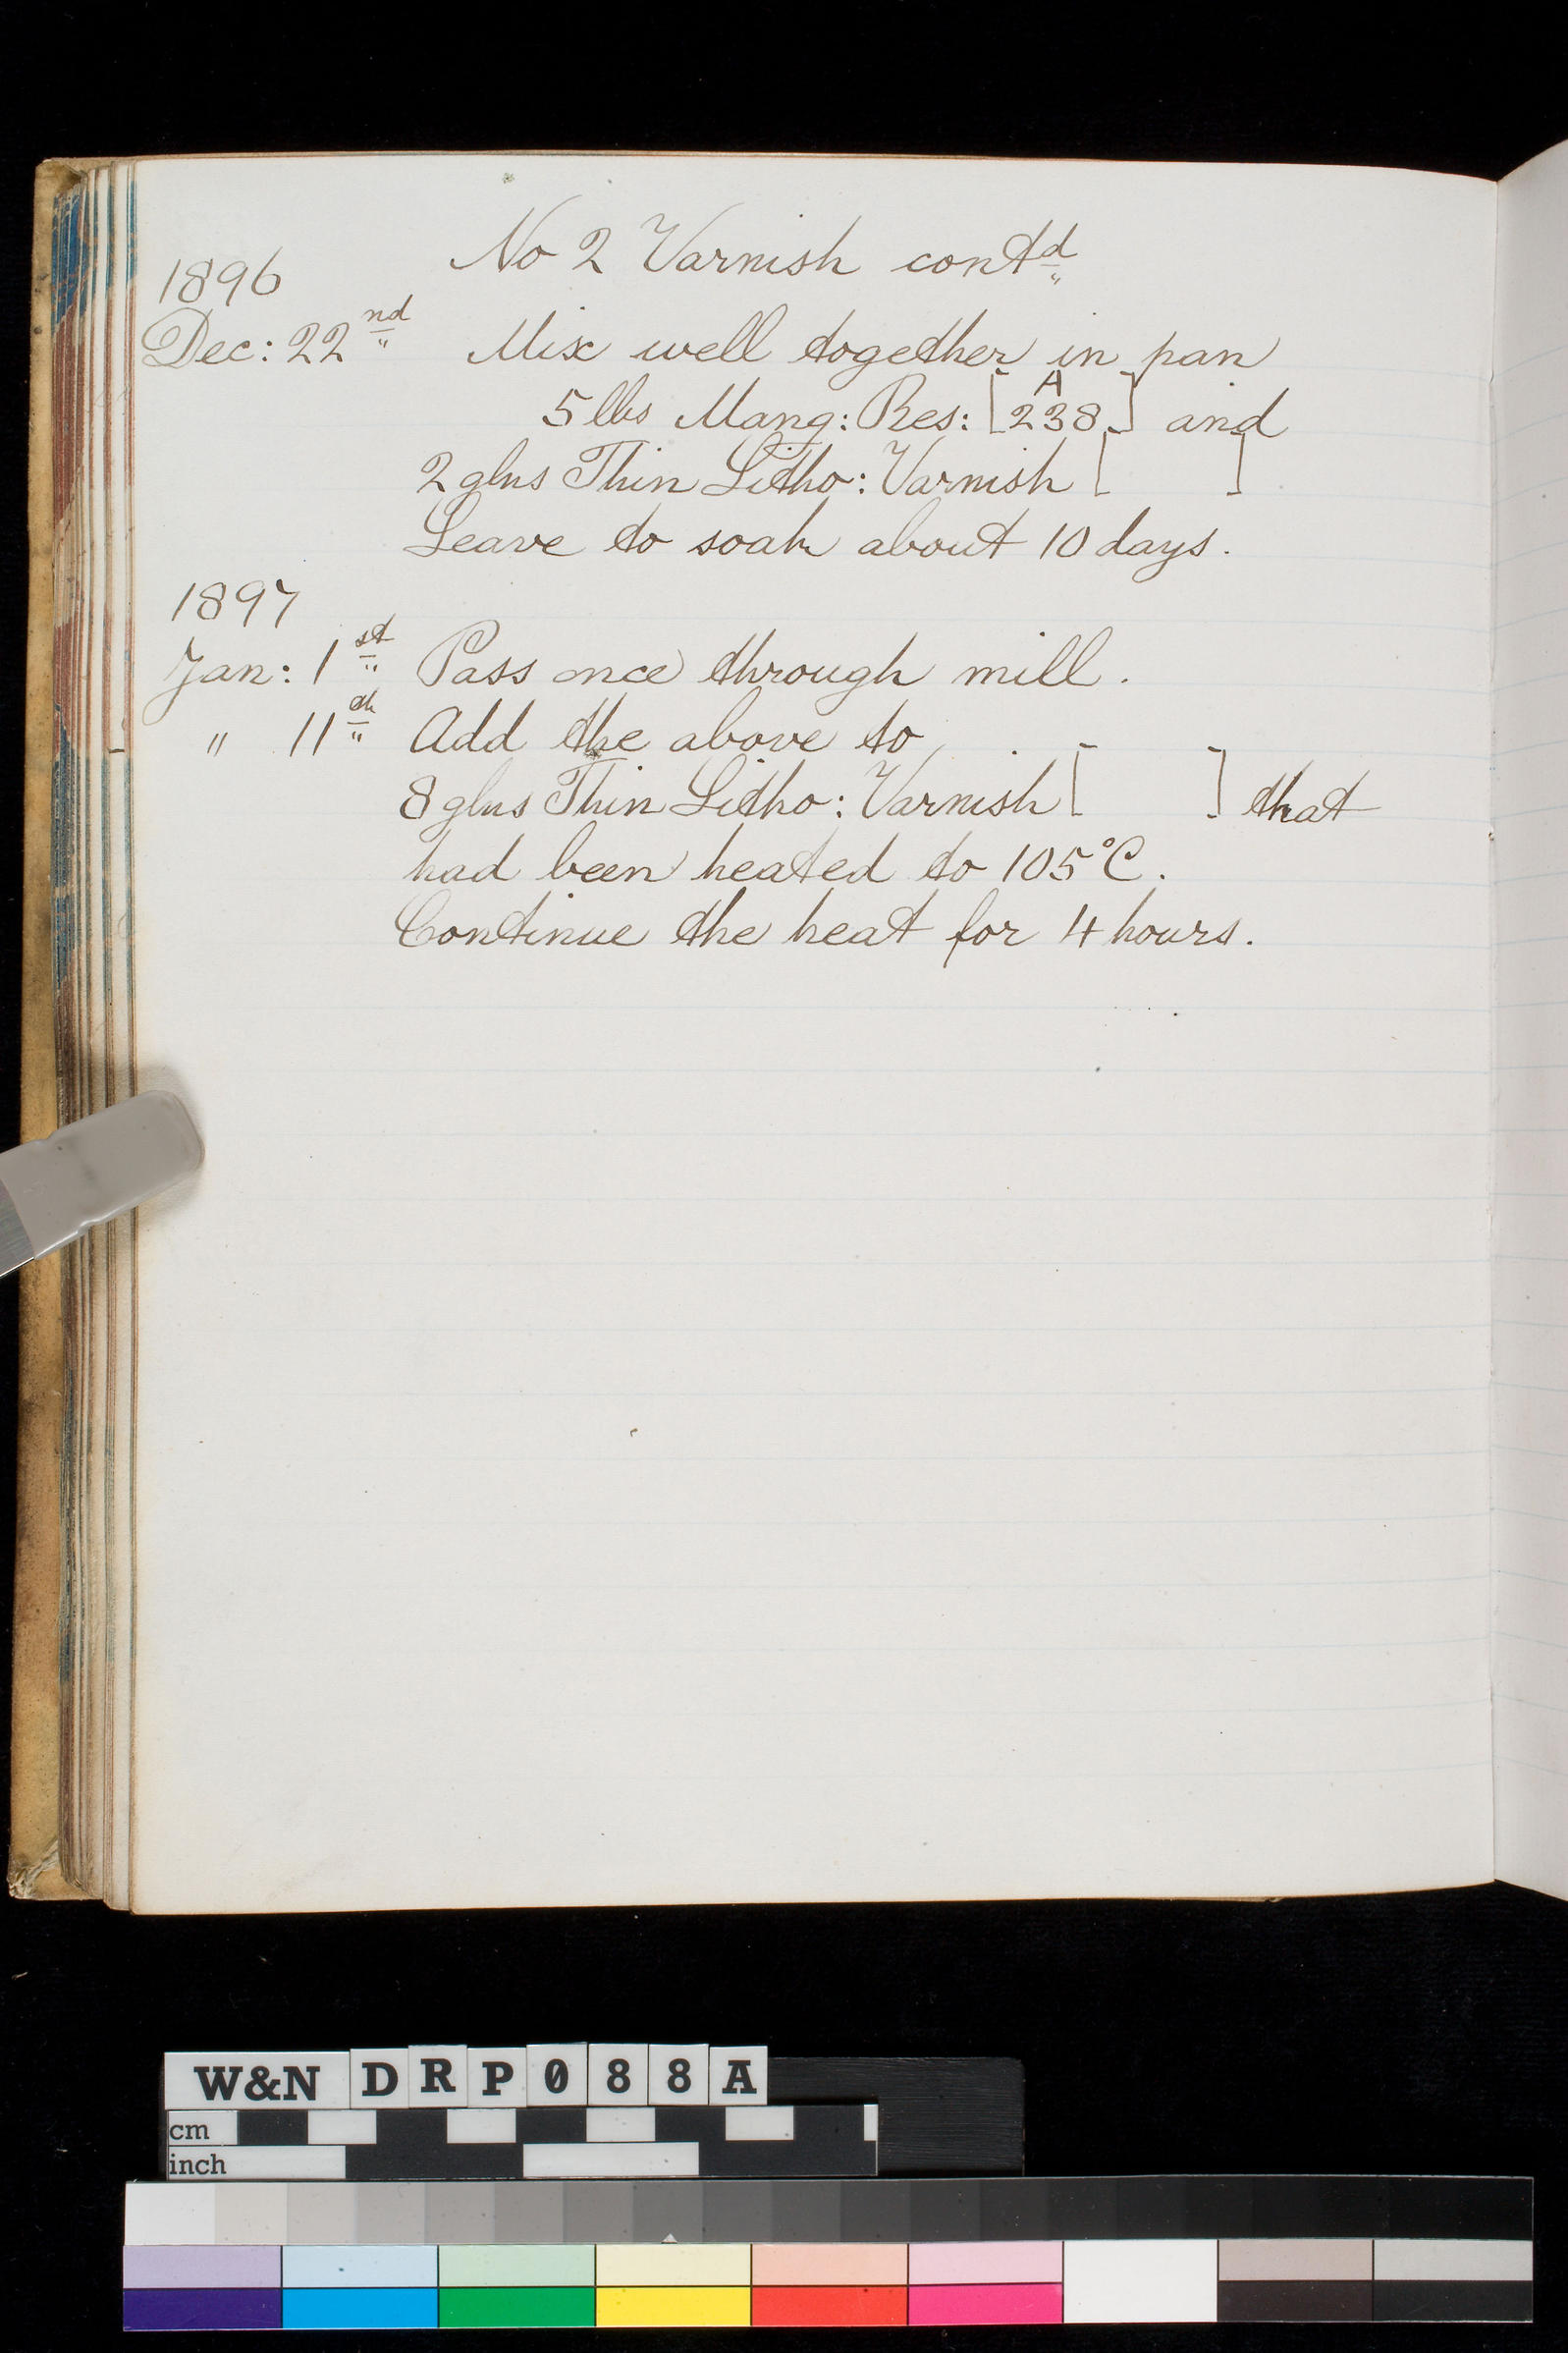 No 2 Varnish contd
1896
Dec: 22nd Mix well together in pan
5 lbs Mang: Res: [238 A] and
2 glns Thin Litho: Varnish [ ]
Leave to soak about 10 days.
1897
Jan: 1st Pass once through mill.
" 11th Add the above to
8 glns Thin Litho: Varnish [ ] that
had been heated to 105°C.
Continue the heat for 4 hours.
W&N DRP088A
cm
inch